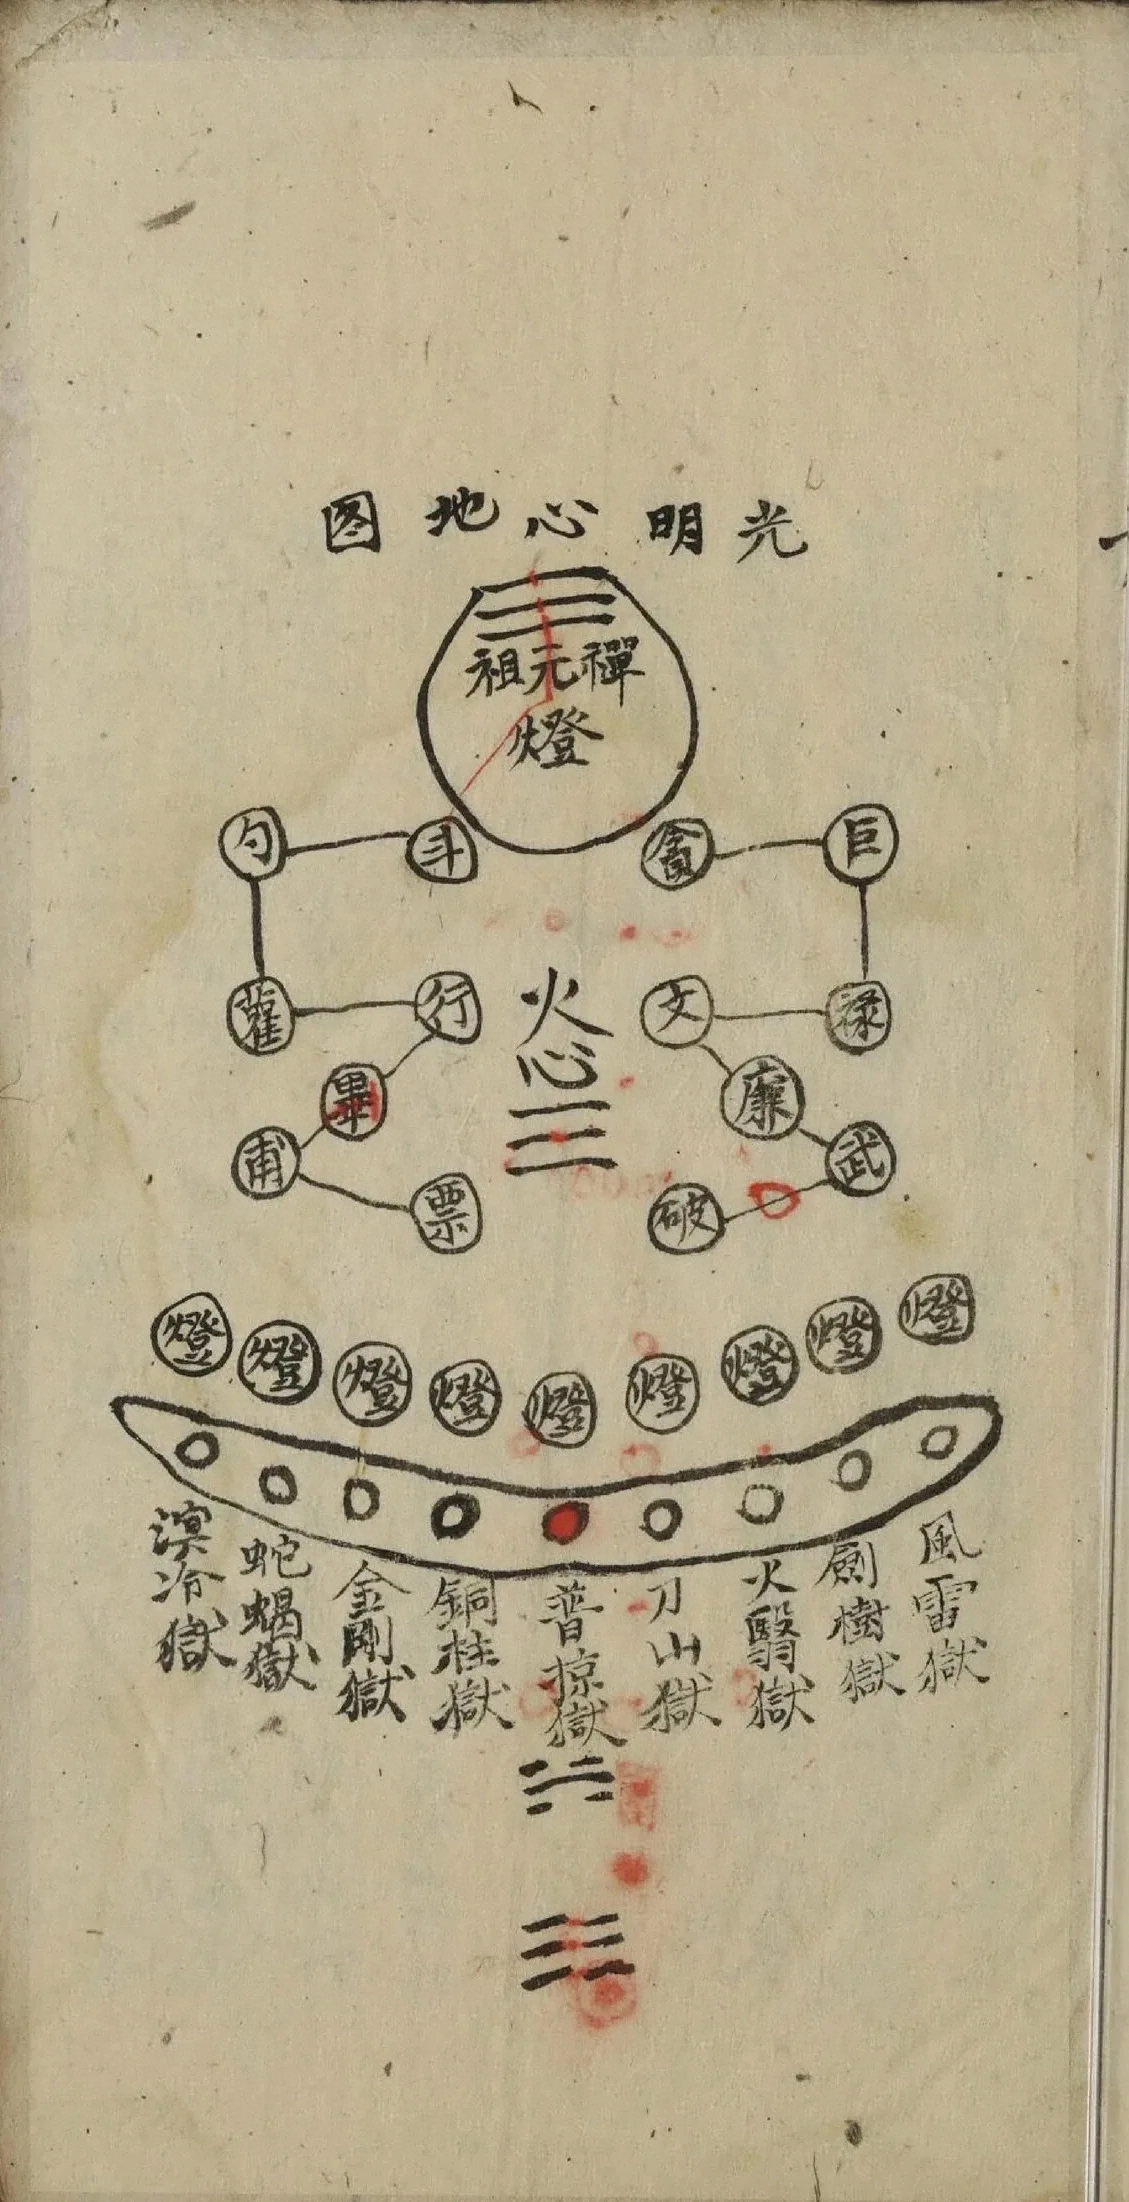 光明心地图
禪元祖
燈
斗 勺
貪 巨
雚 行
文 祿
火
心
畢
廉
甫
武
票
破
燈 燈 燈 燈 燈 燈 燈 燈 燈
風雷獄
劍樹獄
火翳獄
刀山獄
普掠獄
銅柱獄
金剛獄
蛇蝎獄
溟冷獄